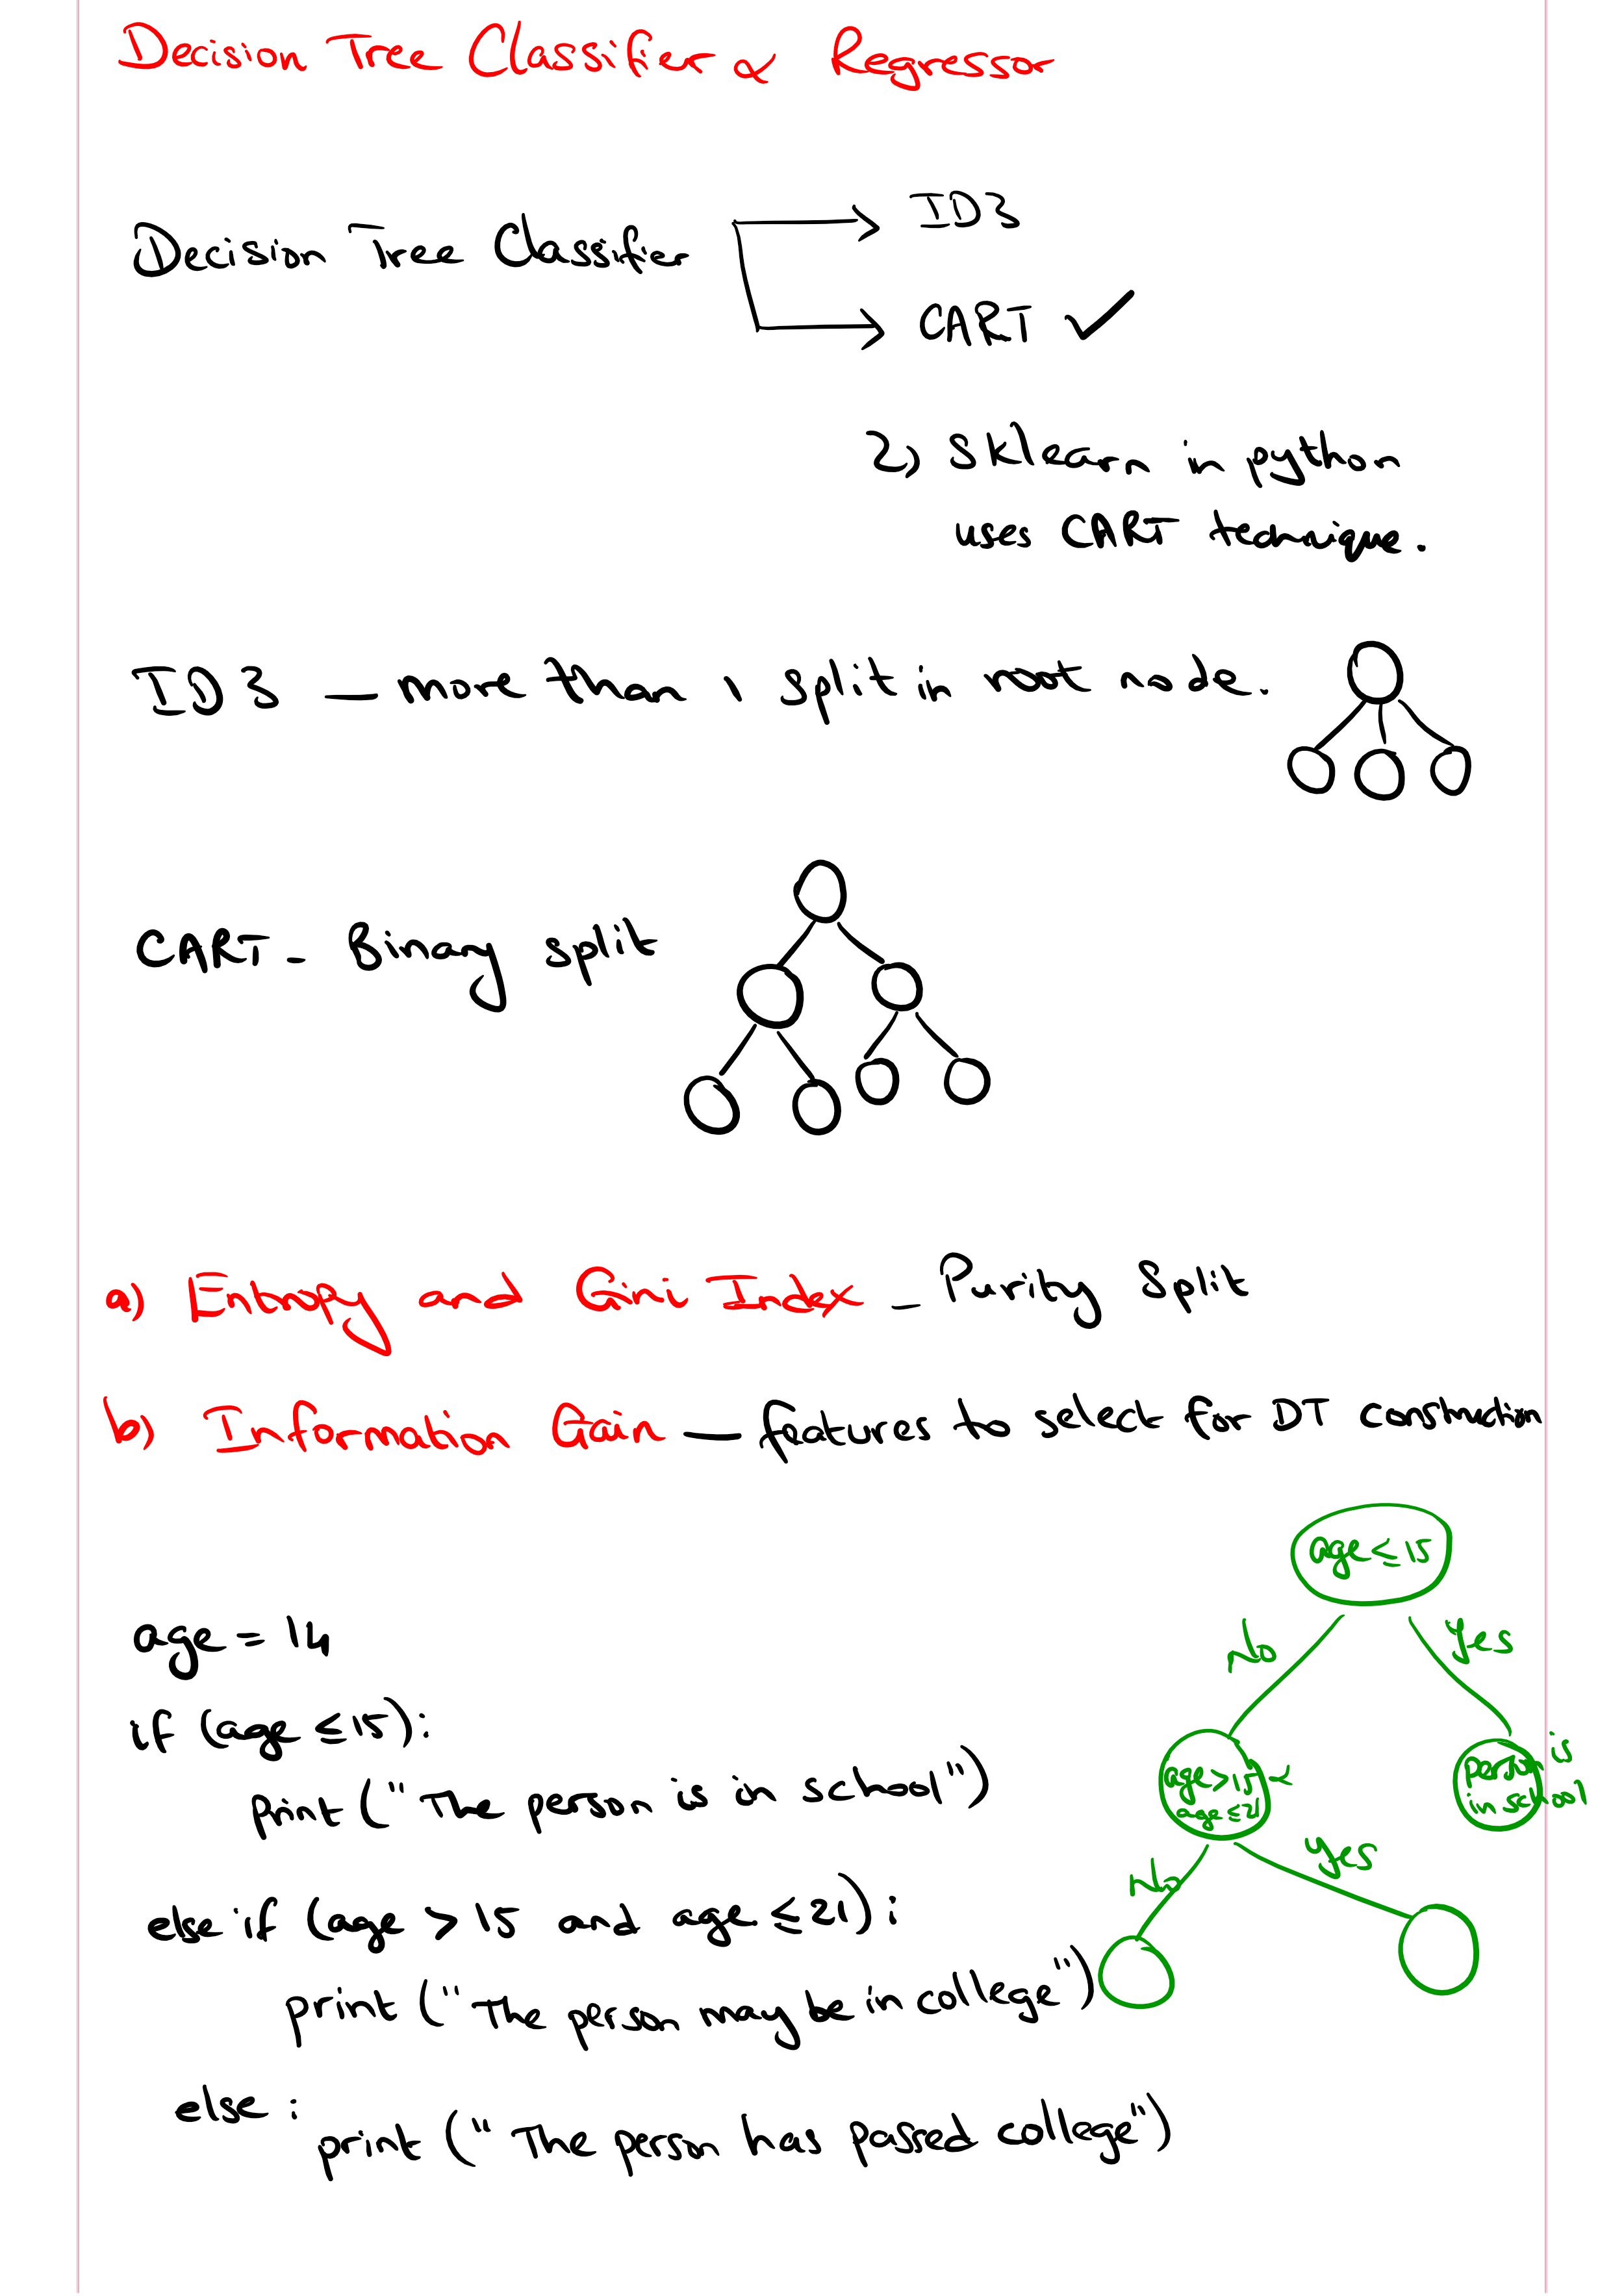 Decision Tree Classifier & Regressor
Decision Tree Classifier
ID3
CART ✓
2) Sklearn in python
uses CART technique.
ID3 — more than 1 split in root node.
CART - Binary split
a) Entropy and Gini Index - Purity Split
b) Information Gain — features to select for DT construction
age = 14
if (age ≤ 15):
print ("The person is in school")
else if (age > 15 and age ≤ 21):
print ("The person may be in college")
else :
print ("The person has passed college")
age ≤ 15
No
Yes
age > 15 &
age ≤ 21
person is
in school
No
Yes